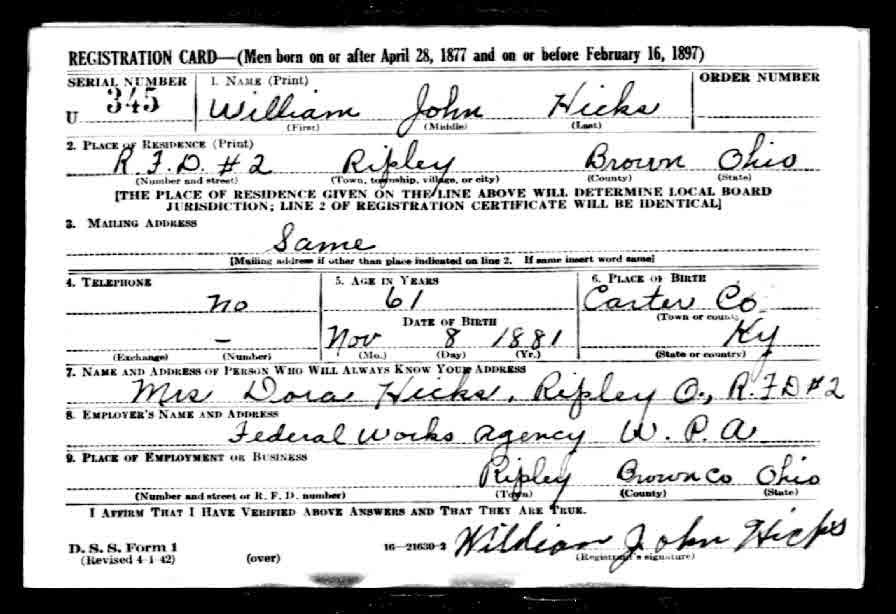 REGISTRATION CARD—(Men born on or after April 28, 1877 and on or before February 16, 1897)
SERIAL NUMBER 1. NAME (Print) ORDER NUMBER
U 345 William John Hicks
(First) (Middle) (Last)
2. PLACE OF RESIDENCE (Print)
R.F.D. #2 Ripley Brown Ohio
(Number and street) (Town, township, village, or city) (County) (State)
[THE PLACE OF RESIDENCE GIVEN ON THE LINE ABOVE WILL DETERMINE LOCAL BOARD
JURISDICTION; LINE 2 OF REGISTRATION CERTIFICATE WILL BE IDENTICAL]
3. MAILING ADDRESS
Same
[Mailing address if other than place indicated on line 2. If same insert word same]
4. TELEPHONE 5. AGE IN YEARS 6. PLACE OF BIRTH
no 61 Carter Co
DATE OF BIRTH (Town or county)
– Nov 8 1881 Ky
(Exchange) (Number) (Mo.) (Day) (Yr.) (State or country)
7. NAME AND ADDRESS OF PERSON WHO WILL ALWAYS KNOW YOUR ADDRESS
Mrs Dora Hicks, Ripley O., R.F.D #2
8. EMPLOYER'S NAME AND ADDRESS
Federal Works agency W. P. A
9. PLACE OF EMPLOYMENT OR BUSINESS
Ripley Brown Co Ohio
(Number and street or R. F. D. number) (Town) (County) (State)
I AFFIRM THAT I HAVE VERIFIED ABOVE ANSWERS AND THAT THEY ARE TRUE.
D. S. S. Form 1 16—21630-2 William John Hicks
(Revised 4-1-42) (over) (Registrant's signature)